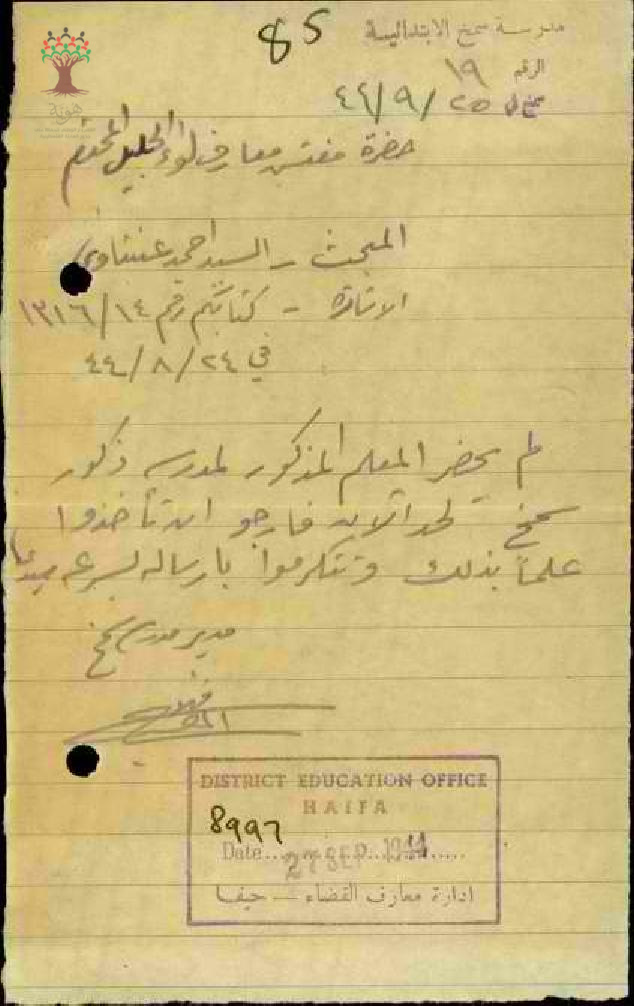 85
مدرسة سمخ الابتدائية
الرقم ١٩
سمخ في ٢٥/٩/٤٤
هوية
حضرة مفتش معارف لواء الجليل المحترم
المبحث - السيد احمد عنبتاوي
الاشارة - كتابكم رقم ١٣١٦/١٤
في ٢٤/٨/٤٤
لم يحضر المعلم المذكور لمدرسة ذكور
سمخ لحد الآن فارجو ان تأخذوا
علماً بذلك وتتكرموا بارساله بسرعه
مدير مدرسة سمخ
DISTRICT EDUCATION OFFICE
HAIFA
8997
Date 27 SEP 1944
ادارة معارف القضاء — حيفا